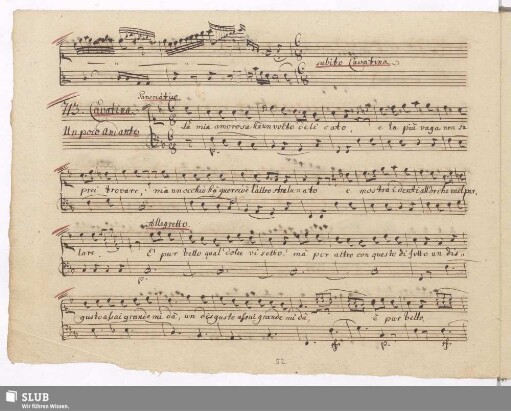 subito Cavatina.
Cavatina.
Un poco Andante
La mia amorosa ha un volto delicato, e la più vaga non sa
prei trovare, mia un occhio ha guercio e l'altro stralunato e mostra i denti all'orche nel par
lare.
Allegretto.
E' pur bello qual dolce visetto! ma pur altro con questo difetto un dis
gusto assai grande mi dà, un disgusto assai grande mi dà, è pur bello
p.
p.
52
SLUB
Wir führen Wissen.